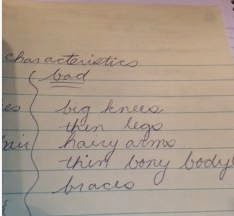 characteristics
bad
big knees
thin legs
hairy arms
thin bony body
braces